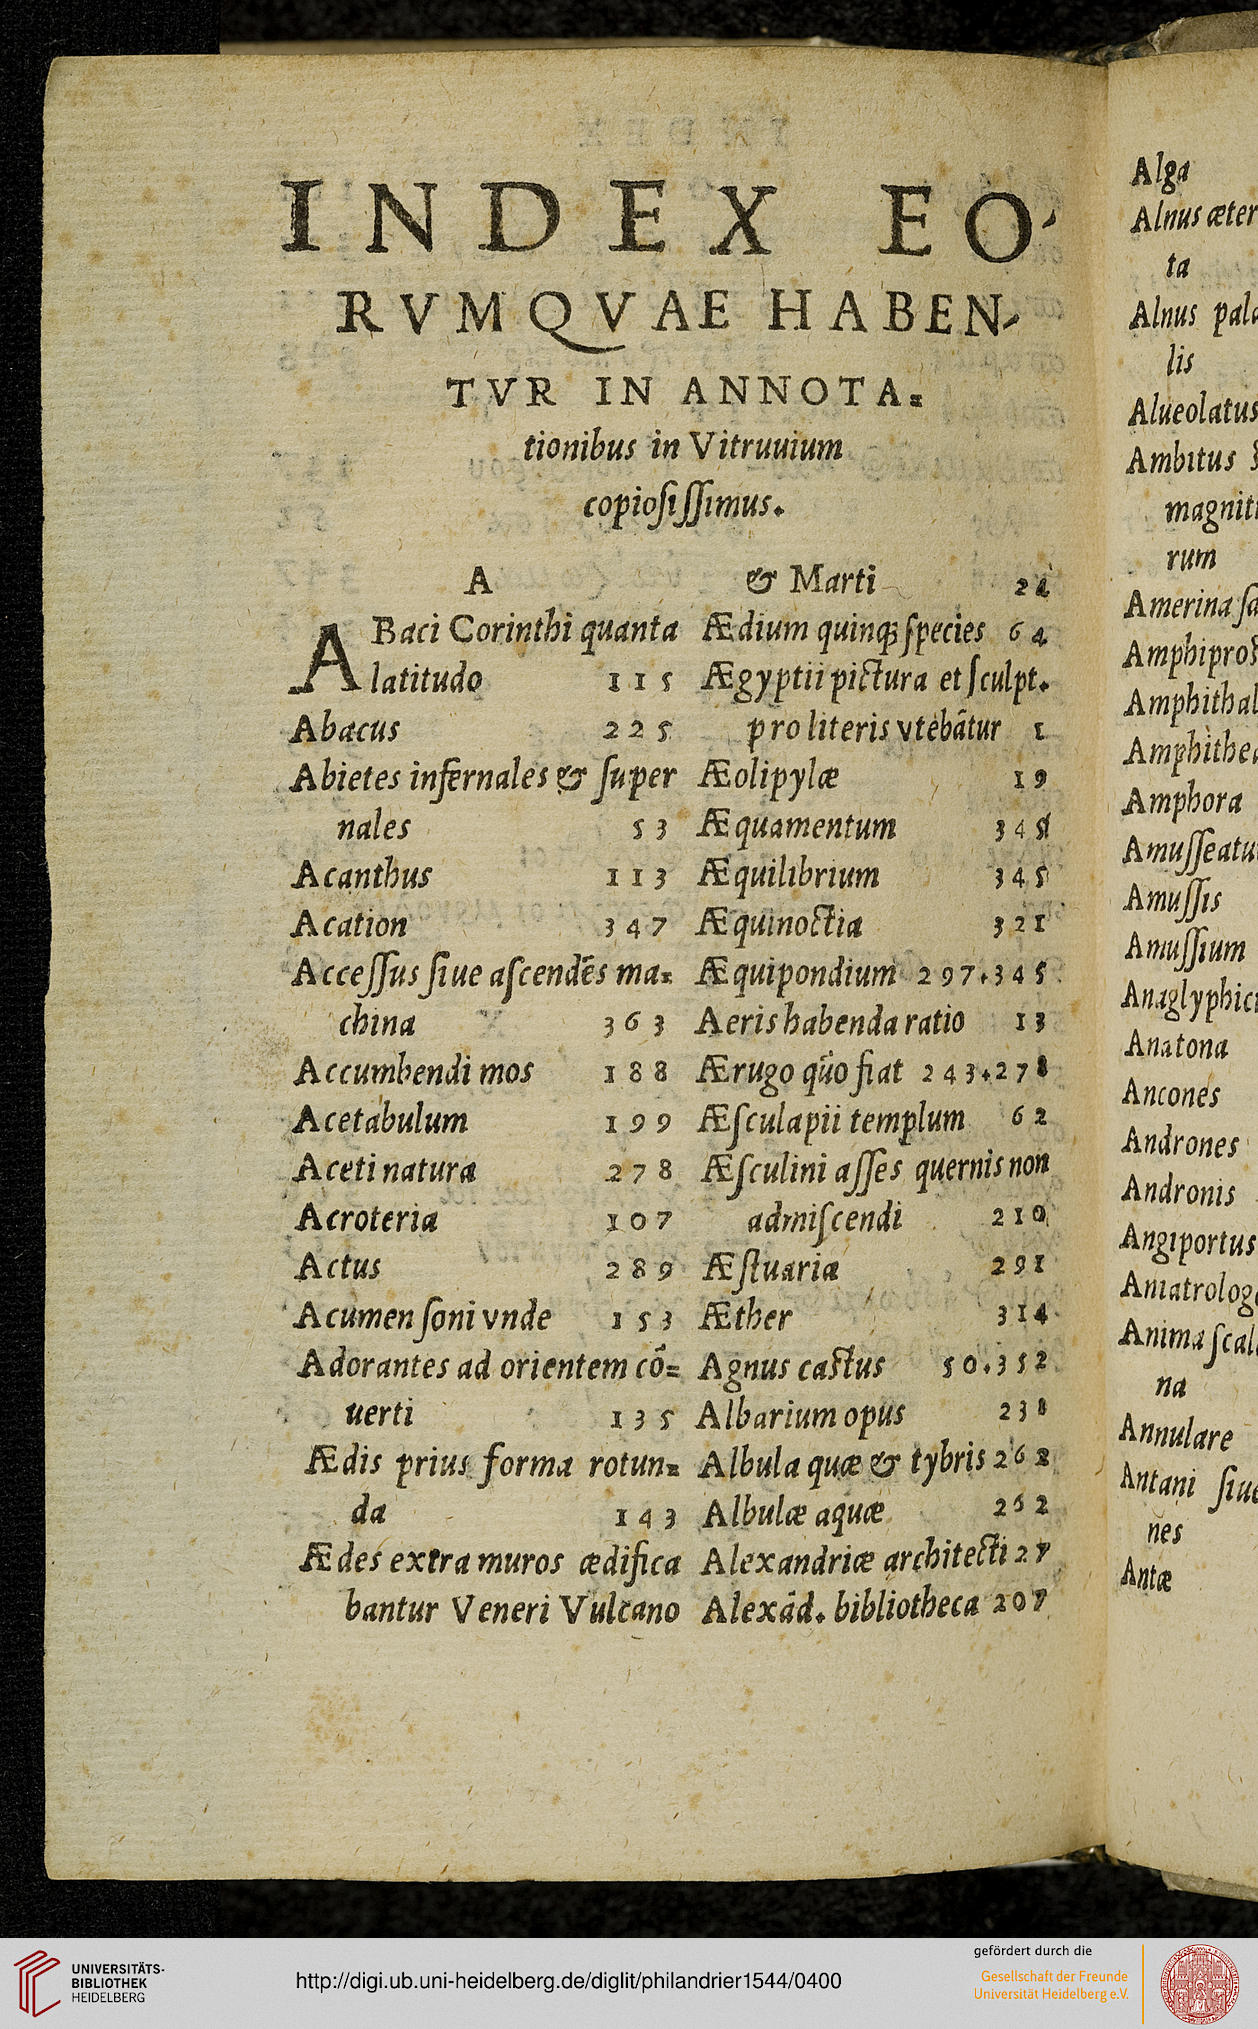 INDEX EO-
RVMQVAE HABEN-
TVR IN ANNOTA=
tionibus in Vitruuium
copiosissimus.
A
ABaci Corinthi quanta
latitudo 115
Abacus 225
Abietes infernales & super
nales 53
Acanthus 113
Acation 347
Accessus siue ascendēs ma=
china 363
Accumbendi mos 188
Acetabulum 199
Aceti natura 278
Acroteria 107
Actus 289
Acumen soni vnde 153
Adorantes ad orientem cō=
uerti 135
Ædis prius forma rotun=
da 143
Ædes extra muros ædifica
bantur Veneri Vulcano
& Marti
Ædium quinq; species 64
Ægyptii pictura et sculpt.
pro literis vtebātur 1
Æolipylæ 19
Æquamentum 345
Æquilibrium 345
Æquinoctia 321
Æquipondium 297.345
Aeris habenda ratio 13
Ærugo quo fiat 243.278
Æsculapii templum 62
Æsculini asses quernis non
admiscendi 210
Æstuaria 291
Æther 314
Agnus castus 50.352
Albarium opus 238
Albula quæ & tybris 262
Albulæ aquæ 262
Alexandriæ architecti 27
Alexād. bibliotheca 207
Alga
Alnus æter
ta
Alnus pala
lis
Alueolatus
Ambitus
magnit
rum
Amerina sa
Amphipros
Amphithal
Amphithea
Amphora
Amusseatu
Amussis
Amussium
Anaglyphic
Anatona
Ancones
Andrones
Andronis
Angiportus
Aniatrolog
Anima scal
na
Annulare
Antani siue
nes
Antæ
UNIVERSITÄTS-
BIBLIOTHEK
HEIDELBERG
http://digi.ub.uni-heidelberg.de/diglit/philandrier1544/0400
gefördert durch die
Gesellschaft der Freunde
Universität Heidelberg e.V.